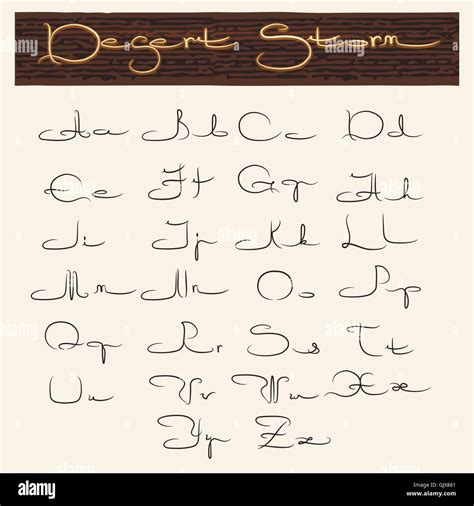 Desert Storm
Aa Bb Cc Dd
Ee Ff Gg Hh
Ii Jj Kk Ll
Mm Nn Oo Pp
Qq Rr Ss Tt
Uu Vv Ww Xx
Yy Zz
alamy
GJX861
www.alamy.com